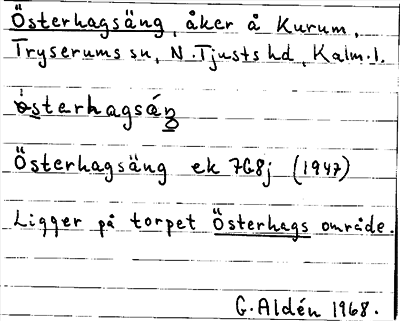 Österhagsäng, åker å Kurum,
Tryserums sn, N. Tjusts hd, Kalm. l.
Österhagsäng ek 7G8j (1947)
Ligger på torpet Österhags område.
G. Aldén 1968.